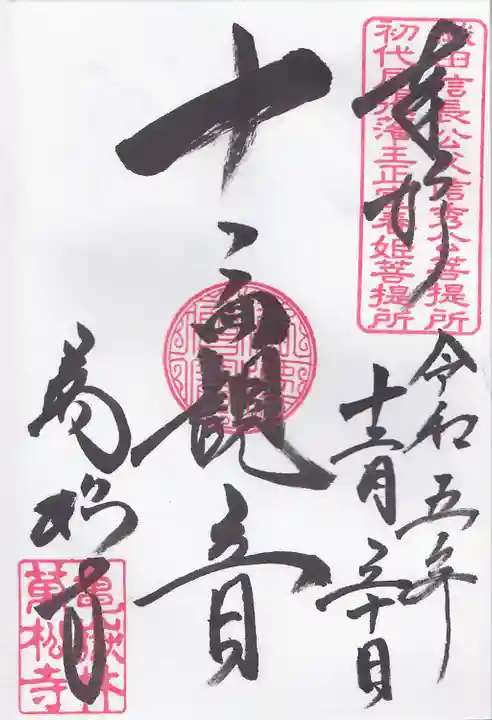 奉拝
織田信長公父信秀公菩提所
初代尾張藩主正室春姫菩提所
令和五年
十二月三十日
十一面観音
萬松寺
亀嶽林
萬松寺